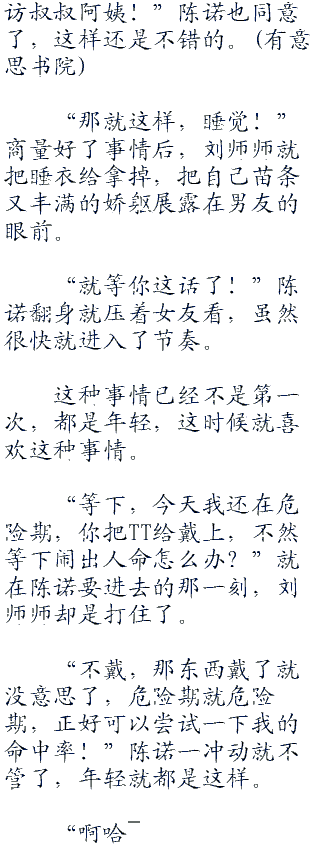 访叔叔阿姨！”陈诺也同意
了，这样还是不错的。（有意
思书院）
“那就这样，睡觉！”
商量好了事情后，刘师师就
把睡衣给拿掉，把自己苗条
又丰满的娇躯展露在男友的
眼前。
“就等你这话了！”陈
诺翻身就压着女友看，虽然
很快就进入了节奏。
这种事情已经不是第一
次，都是年轻，这时候就喜
欢这种事情。
“等下，今天我还在危
险期，你把TT给戴上，不然
等下闹出人命怎么办？”就
在陈诺要进去的那一刻，刘
师师却是打住了。
“不戴，那东西戴了就
没意思了，危险期就危险
期，正好可以尝试一下我的
命中率！”陈诺一冲动就不
管了，年轻就都是这样。
“啊哈¯